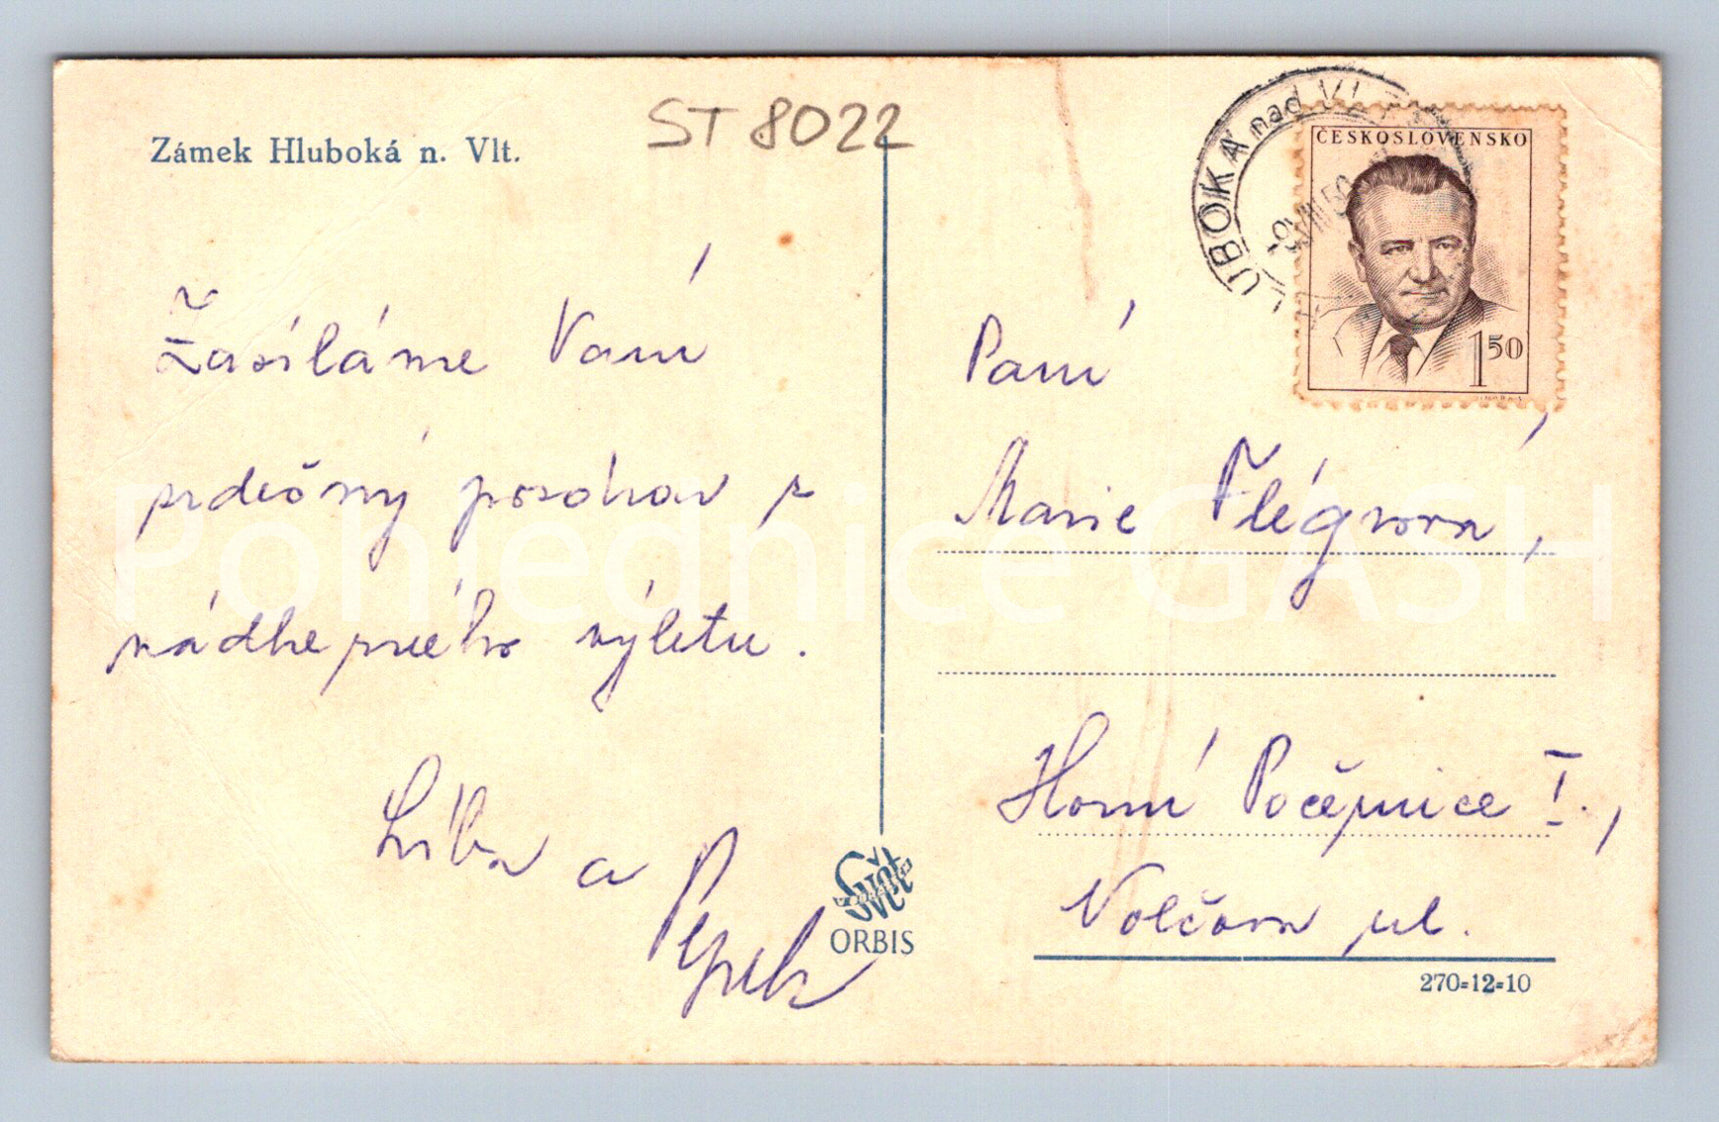 Zámek Hluboká n. Vlt.
ST 8022
Zasíláme Vám
srdečný pozdrav z
nádherného výletu.
Líba a Pepek
ČESKOSLOVENSKO
1 50
LUBOKÁ nad VLT
-9.VIII.50
Paní
Marie
Horní Počernice I.,
Volčova ul.
Svět
ORBIS
270-12-10
Pohlednice GASH